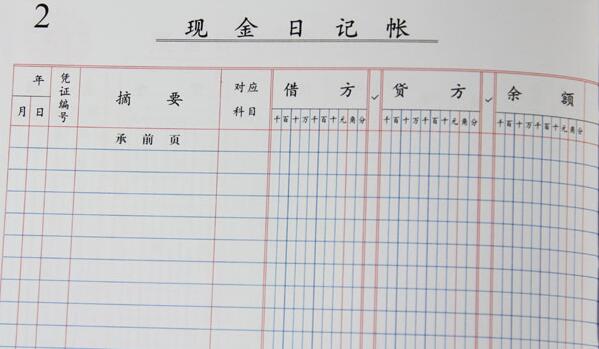 2
现金日记帐
年 凭证编号 摘要 对应科目 借方 ✓ 贷方 ✓ 余额
月 日 千百十万千百十元角分 千百十万千百十元角分 千百十万千百十元角分
承前页